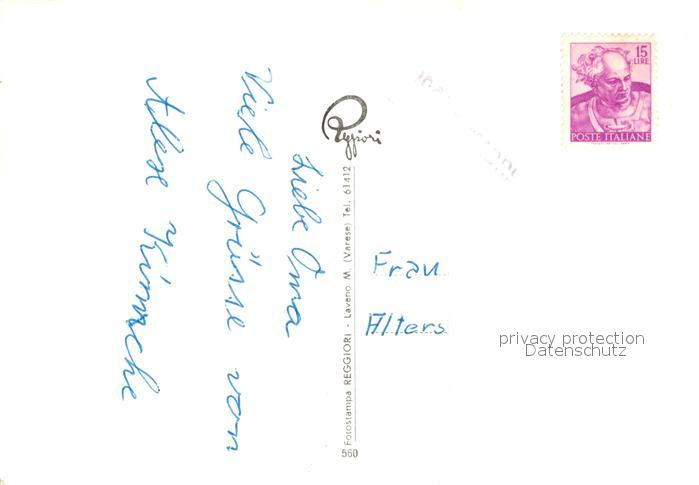 Liebe Oma
Viele Grüsse von
Reggiori
Fotostampa REGGIORI - Laveno M. (Varese) Tel. 61412
560
15
LIRE
POSTE ITALIANE
Frau
Alters
privacy protection
Datenschutz